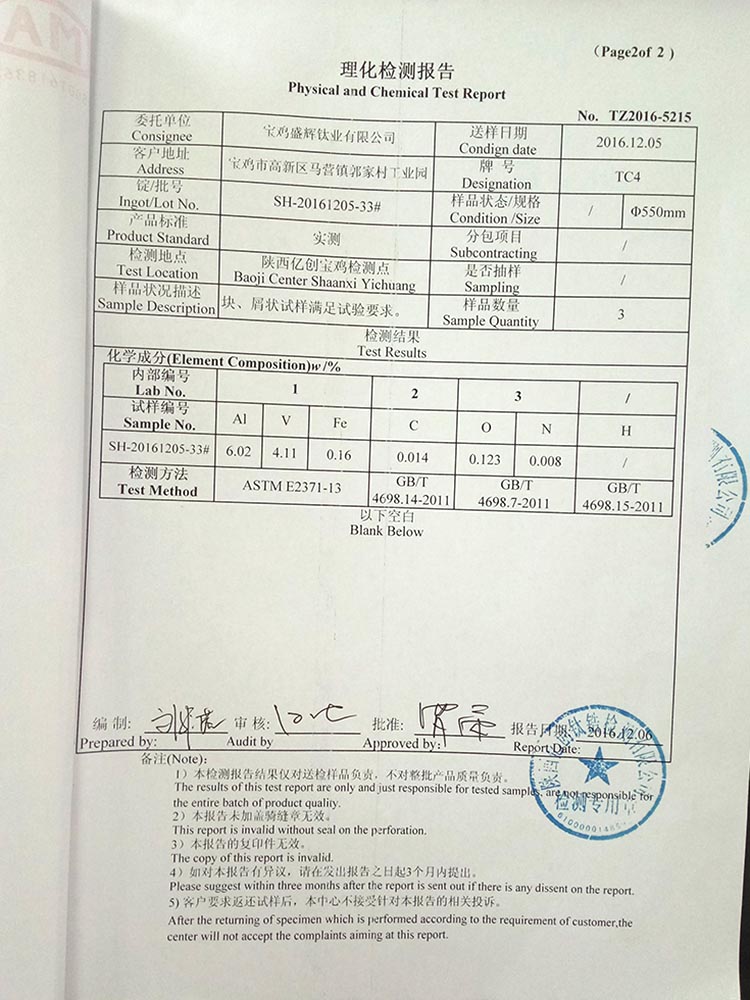 （Page2of 2 )
理化检测报告
Physical and Chemical Test Report
No. TZ2016-5215
委托单位 宝鸡盛辉钛业有限公司 送样日期 2016.12.05
Consignee Condign date
客户地址 宝鸡市高新区马营镇郭家村工业园 牌 号 TC4
Address Designation
锭/批号 SH-20161205-33# 样品状态/规格 / Φ550mm
Ingot/Lot No. Condition /Size
产品标准 实测 分包项目 /
Product Standard Subcontracting
检测地点 陕西亿创宝鸡检测点 是否抽样 /
Test Location Baoji Center Shaanxi Yichuang Sampling
样品状况描述 块、屑状试样满足试验要求。 样品数量 3
Sample Description Sample Quantity
检测结果
Test Results
化学成分(Element Composition)w/%
内部编号 1 2 3 /
Lab No.
试样编号 Al V Fe C O N H
Sample No.
SH-20161205-33# 6.02 4.11 0.16 0.014 0.123 0.008 /
检测方法 ASTM E2371-13 GB/T GB/T GB/T
Test Method 4698.14-2011 4698.7-2011 4698.15-2011
以下空白
Blank Below
编 制: 审 核: 批准: 报告日期: 2016.12.06
Prepared by: Audit by Approved by: Report Date:
备注(Note):
1）本检测报告结果仅对送检样品负责，不对整批产品质量负责。
The results of this test report are only and just responsible for tested samples, are not responsible for
the entire batch of product quality.
2）本报告未加盖骑缝章无效。
This report is invalid without seal on the perforation.
3）本报告的复印件无效。
The copy of this report is invalid.
4）如对本报告有异议，请在发出报告之日起3个月内提出。
Please suggest within three months after the report is sent out if there is any dissent on the report.
5) 客户要求返还试样后，本中心不接受针对本报告的相关投诉。
After the returning of specimen which is performed according to the requirement of customer,the
center will not accept the complaints aiming at this report.
检测专用章
有限公司
MA